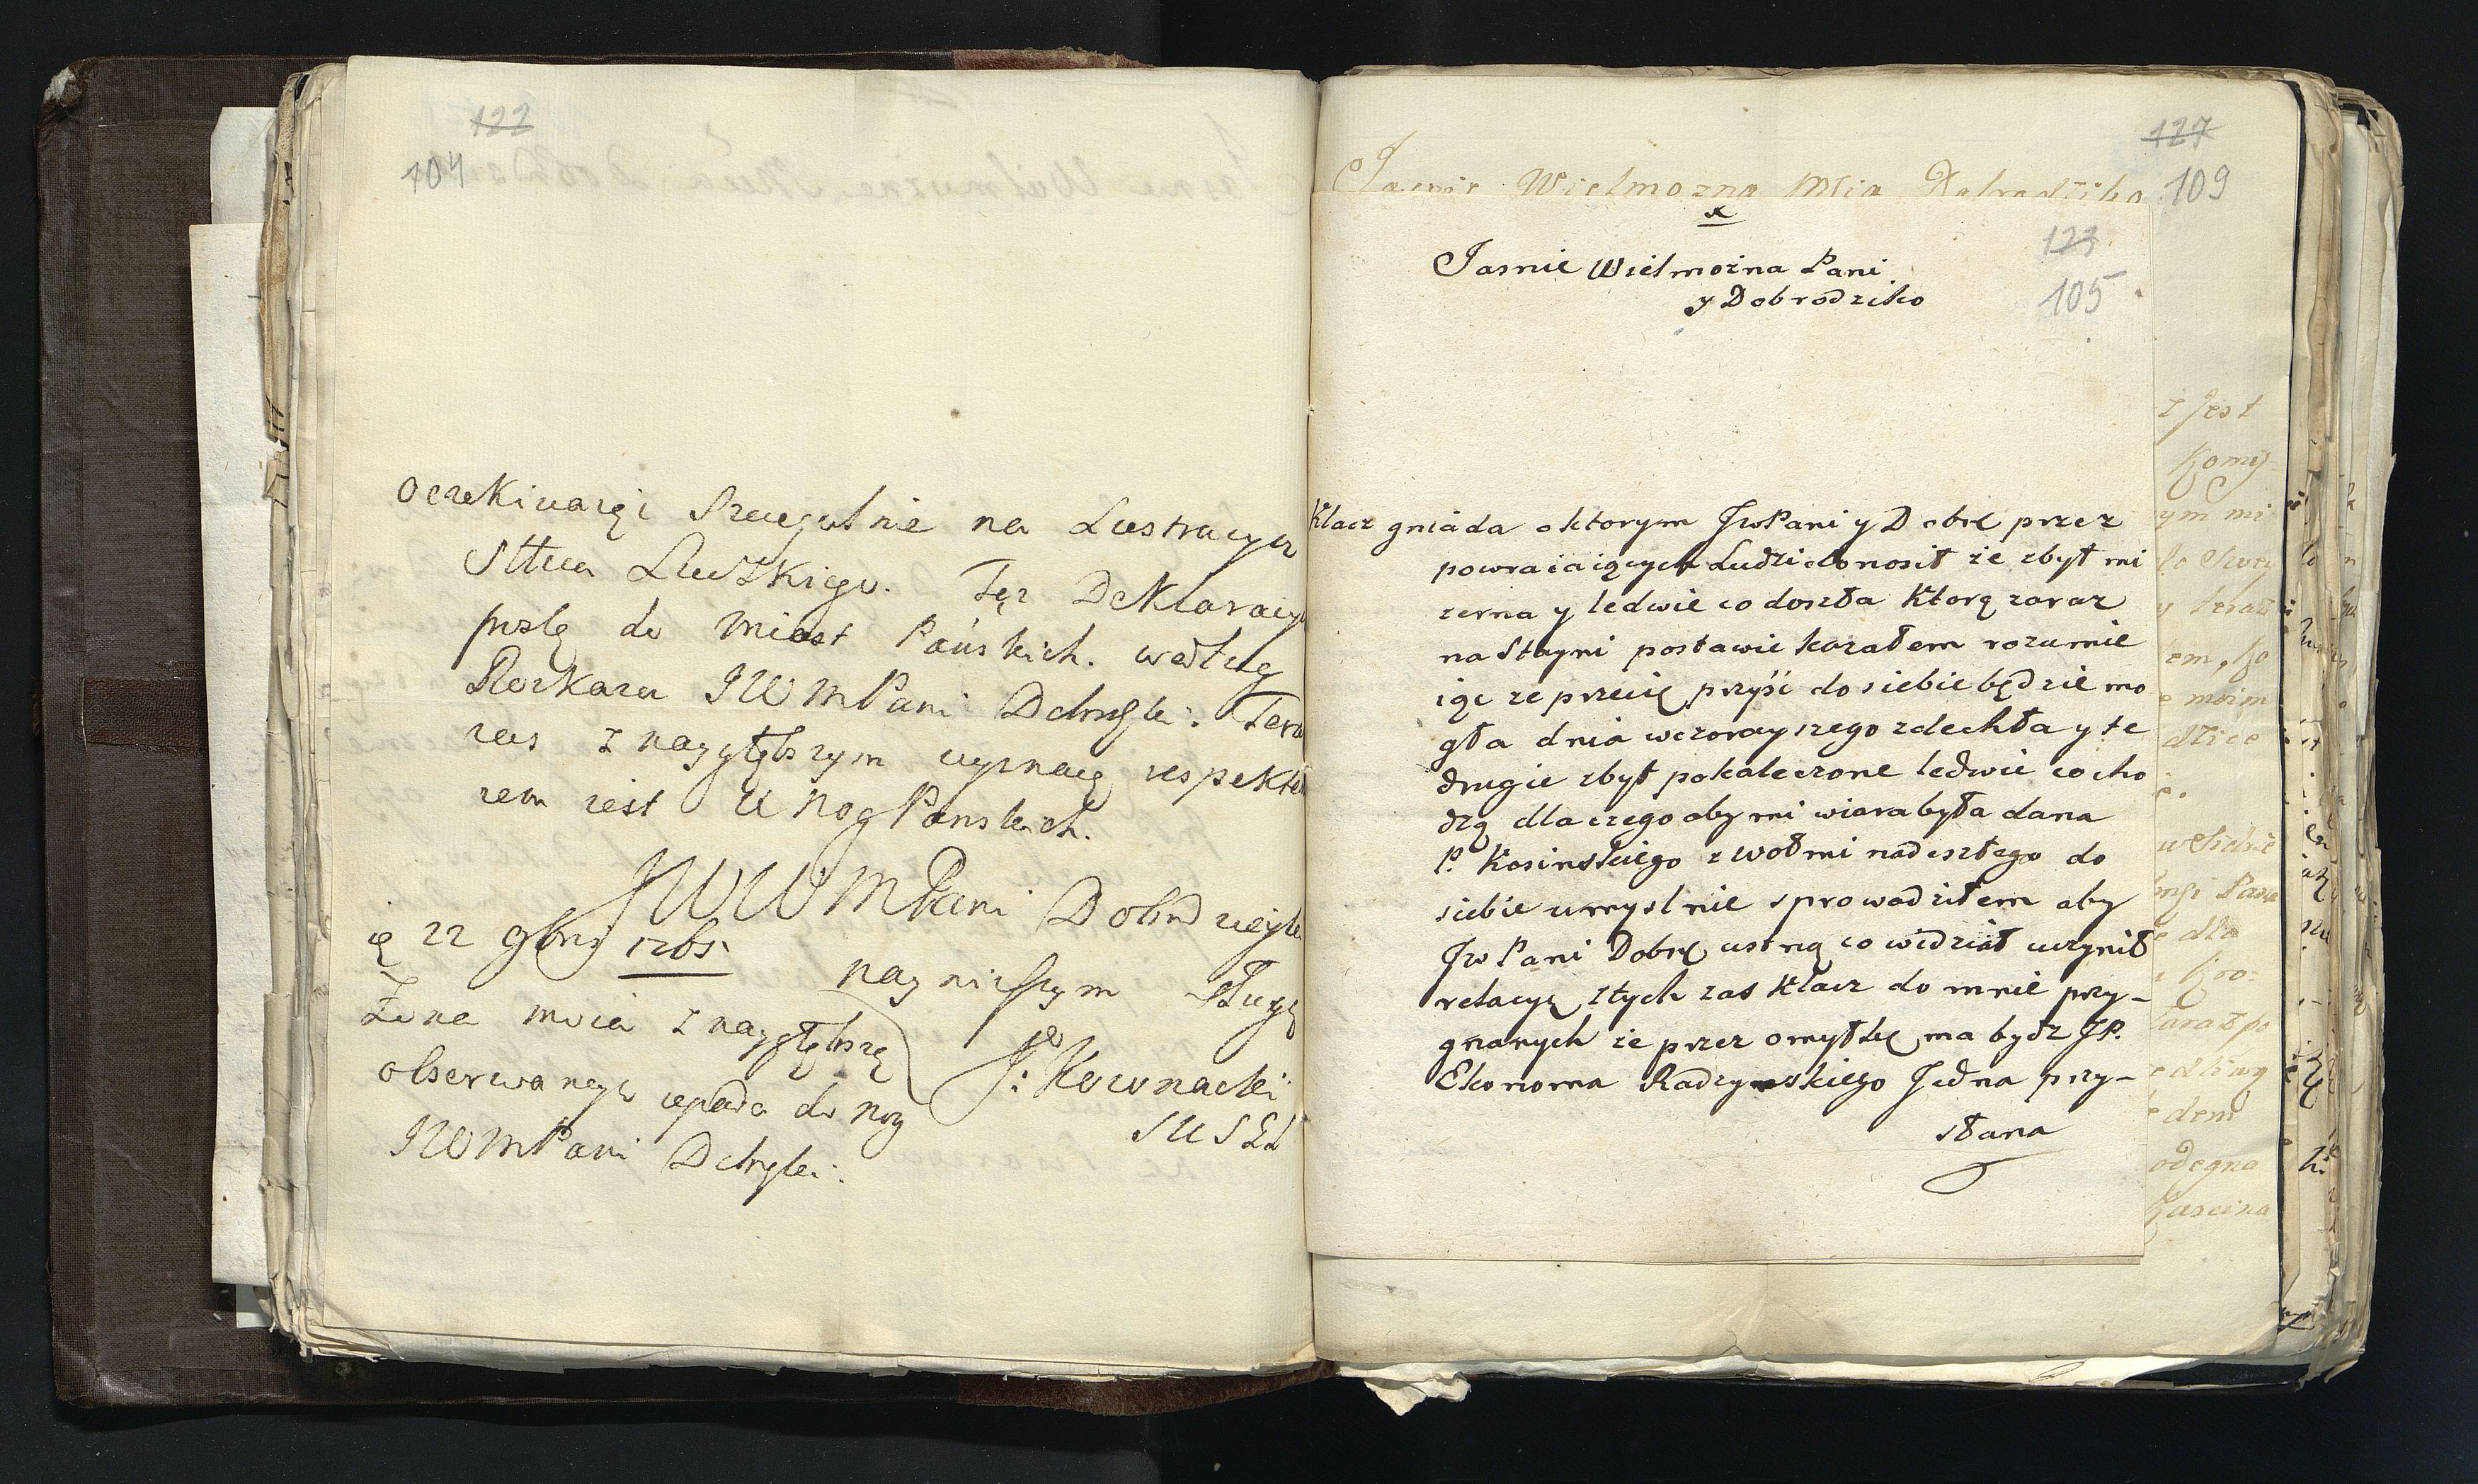 122
104
Oczekiwaiąc Szczegulnie na Lustracyą
Sttwa Łuckiego. Tęż Deklaracyą
poszlę do Miast Pańskich. według
Rozkazu JWMPani Dobrqki: Tera
zas z naygłębszym wyznaię respekte
rem iest U Nog Panskich.
JWWMPani Dobrodzieyki
22 9bris 1765
nayniższym Sługą
Zona moia z nayglębszą
J: Kownacki
obserwancyą upada do nog
SUSŁŁ
JWMPani Dobryki:
127
Jasnie Wielmozna Mcia Dobrodziko
109
123
Jasnie Wielmożna Pani
y Dobrodziko
105
Klacz gniada o ktorym JwPani y Dobrę przez
powracaiących Ludzi donosił że zbyt mi
zerna y ledwie co doszła Ktorą zaraz
na Stayni postawic kazałem rozumie
iąc ze przecię przyść do siebie będzie mo
gła dnia wczorayszego zdechła y te
drugie zbyt pokaleczone ledwie co cho
dzą dla czego aby mi wiara była dana
P. Kosinskiego z wołmi nadeszłego do
siebie umyslnie sprowadziłem aby
Jw Pani Dobrę ustną co widział uczynił
relacyą z tych zas Klacz do mnie przy-
gnanych ze przez omyłkę ma bydz JP.
Ekonoma Radzynskiego Jedna przy-
słana
z Jest
Komis
ym mi
moim
dem
odegna